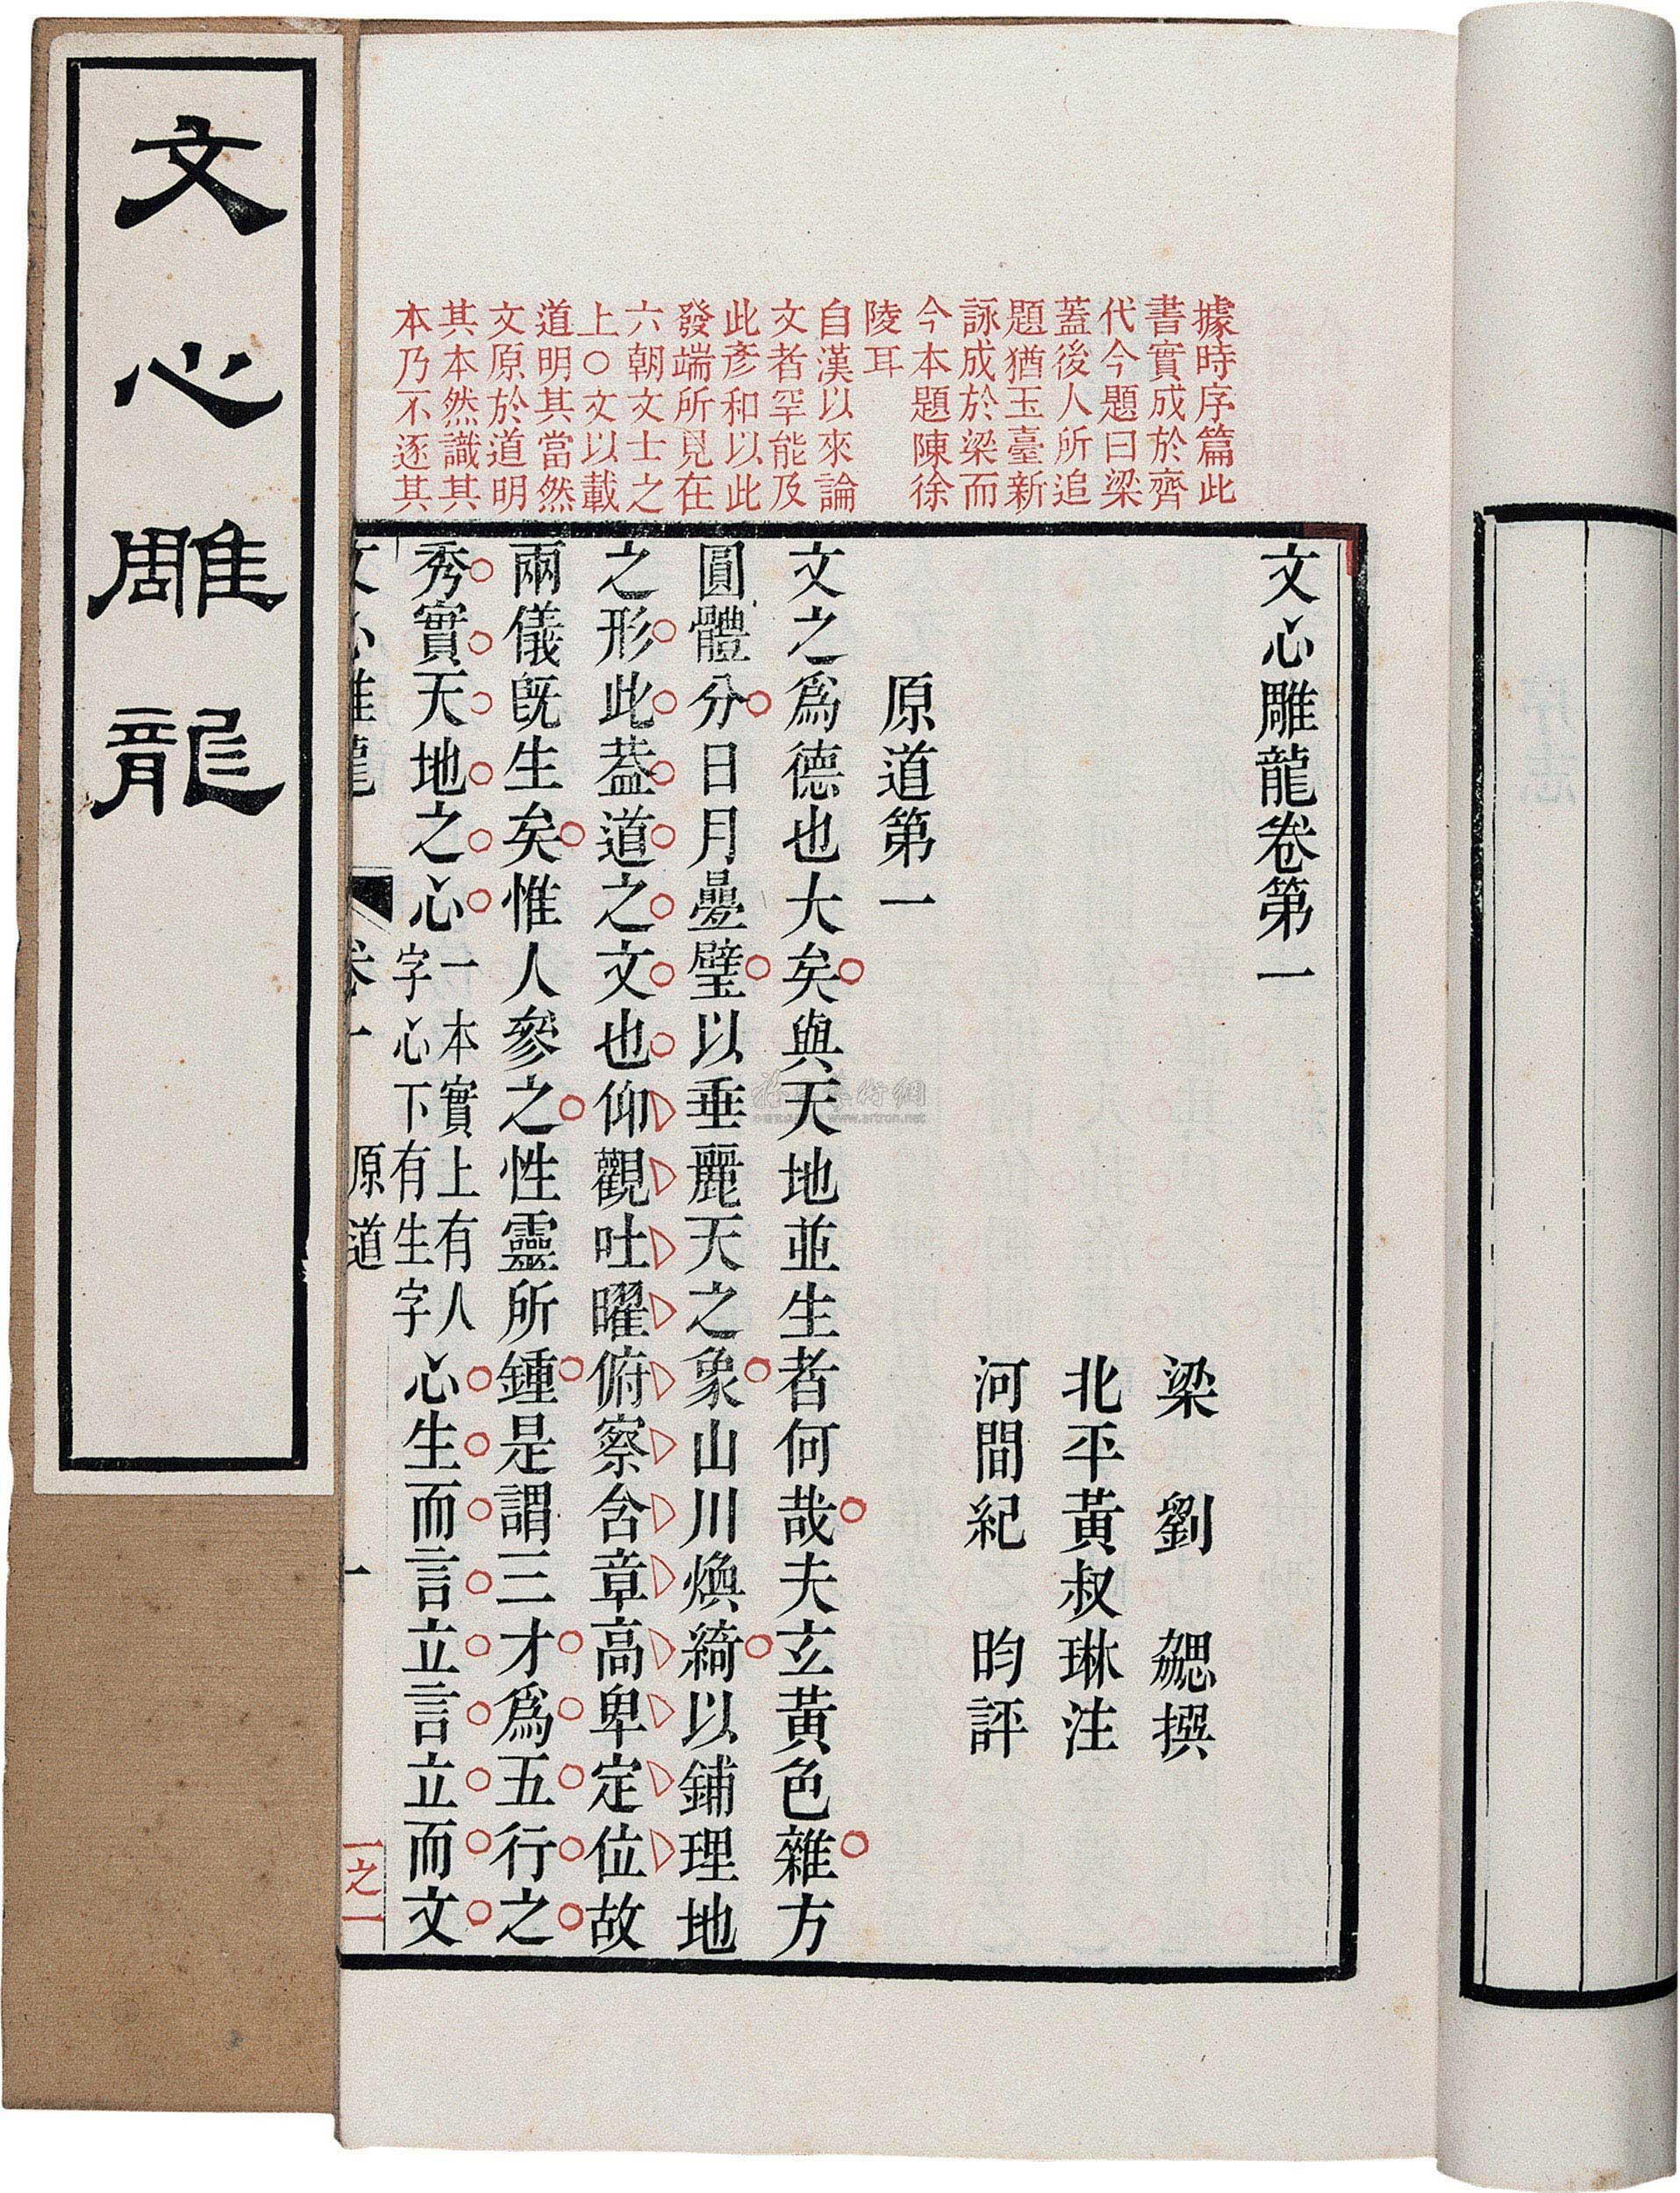 文心雕龍
據時序篇此
書實成於齊
代今題曰梁
蓋後人所追
題猶玉臺新
詠成於梁而
今本題陳徐
陵耳
自漢以來論
文者罕能及
此彥和以此
發端所見在
六朝文士之
上○文以載
道明其當然
文原於道明
其本然識其
本乃不逐其
文心雕龍卷第一
梁劉勰撰
北平黃叔琳注
河間紀昀評
原道第一
文之爲德也大矣與天地並生者何哉夫玄黃色雜方
圓體分日月疊璧以垂麗天之象山川煥綺以鋪理地
之形此葢道之文也仰觀吐曜俯察含章高卑定位故
兩儀旣生矣惟人參之性靈所鍾是謂三才爲五行之
秀實天地之心一本實上有人字心下有生字心生而言立言立而文
文心雕龍 卷一 原道 一
一之一
www.artron.net